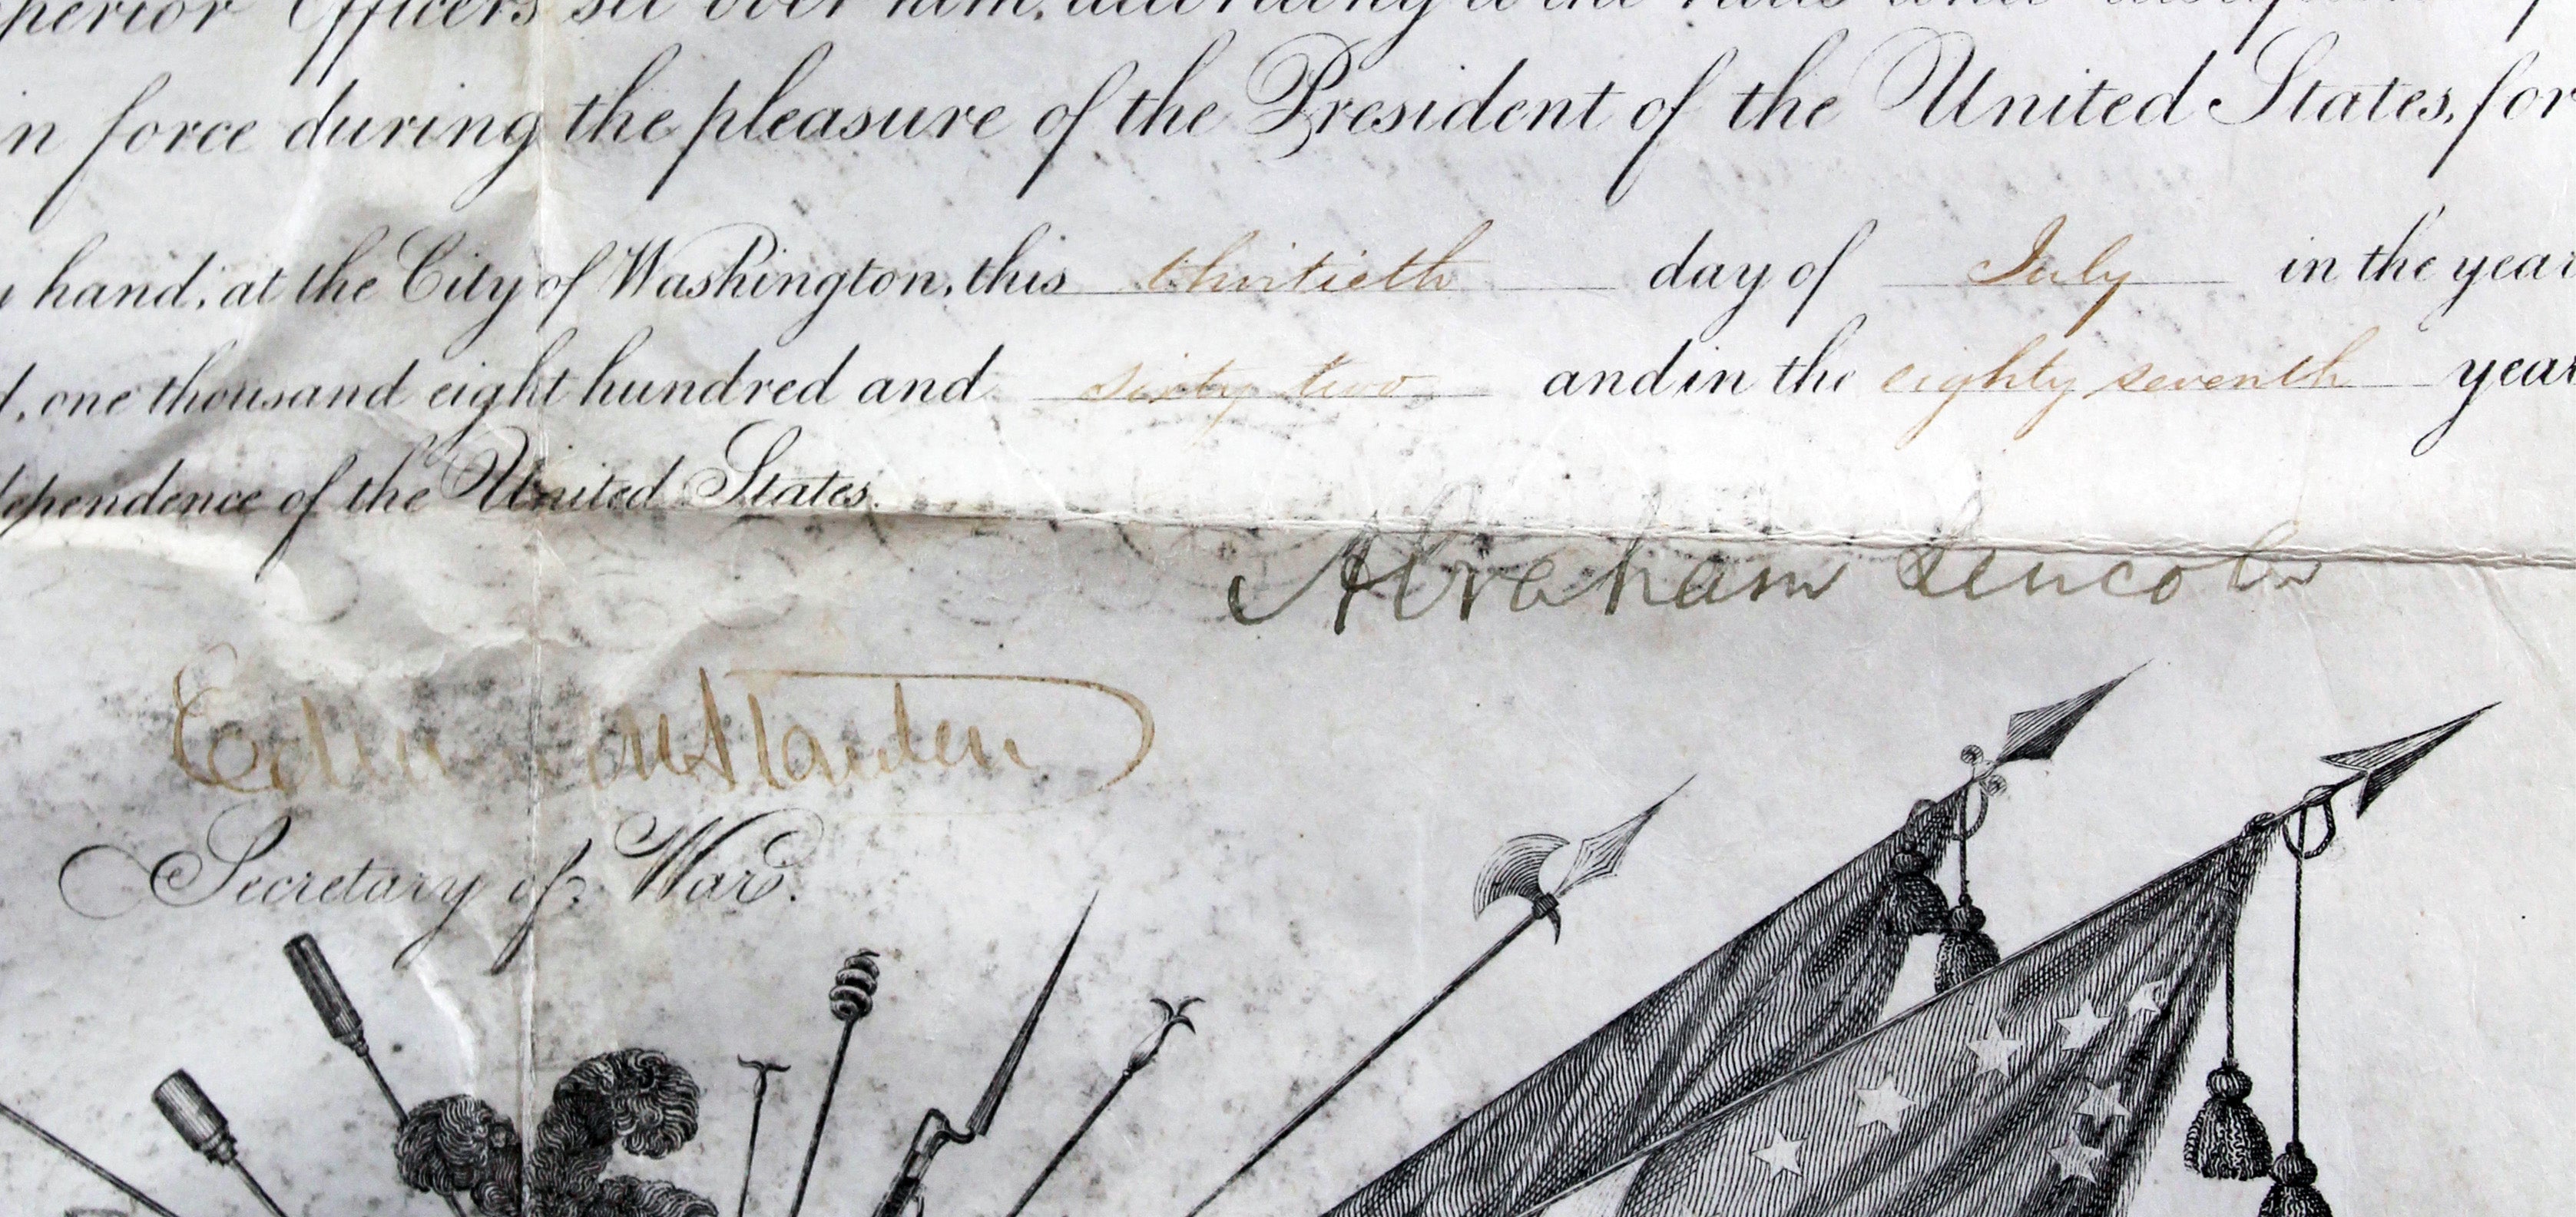 Officers set over him, according to the rules and
in force during the pleasure of the President of the United States, for
hand, at the City of Washington, this thirtieth day of July in the year
one thousand eight hundred and sixty two and in the eighty seventh year
dependence of the United States.
Abraham Lincoln
Edwin M Stanton
Secretary of War.